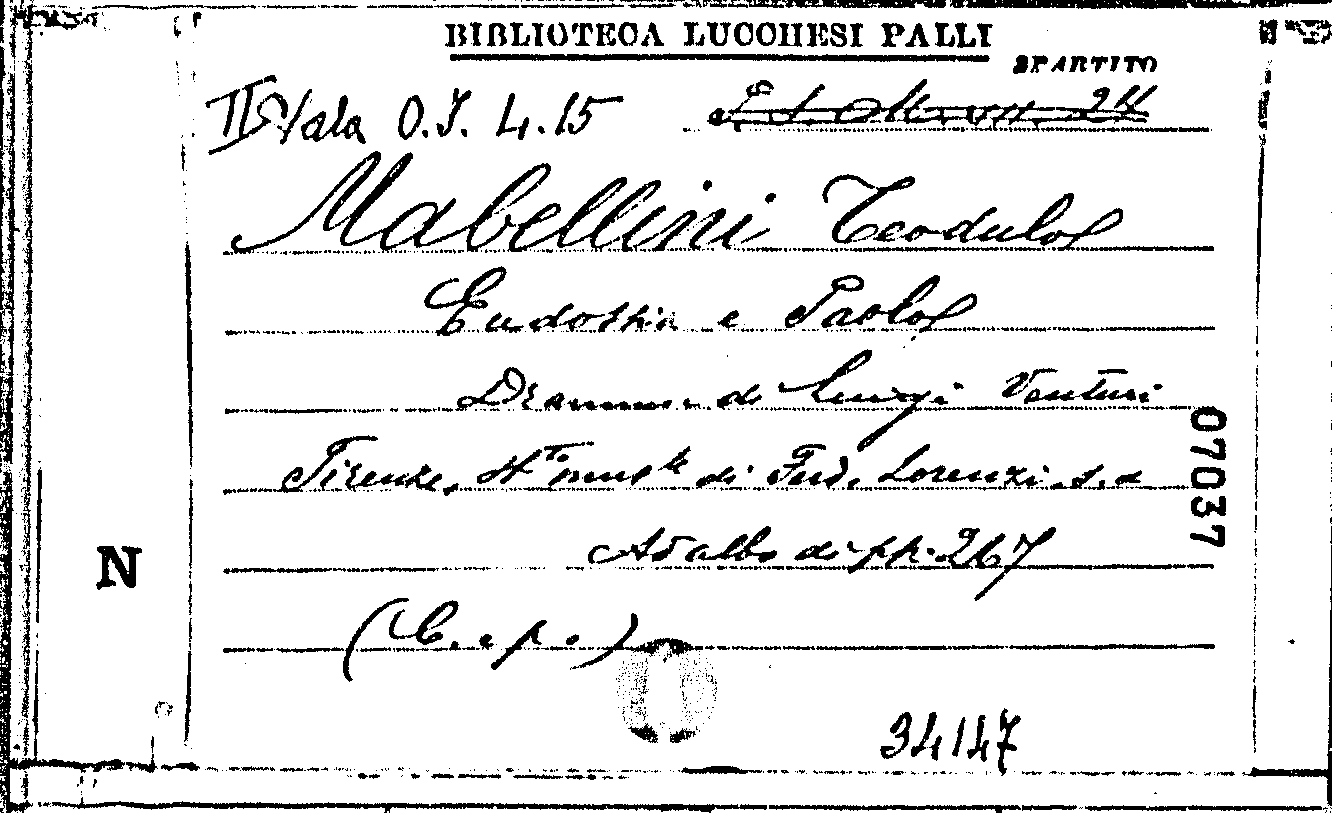 BIBLIOTECA LUCCHESI PALLI
SPARTITO
II Sala O.I. 4.15
Mabellini Teodulo
Eudossia e Paolo
Dramma di Luigi Venturi
Firenze, di Ferd. Lorenzi. s.d
albo di pp. 267
(C. e p.)
07037
N
34147